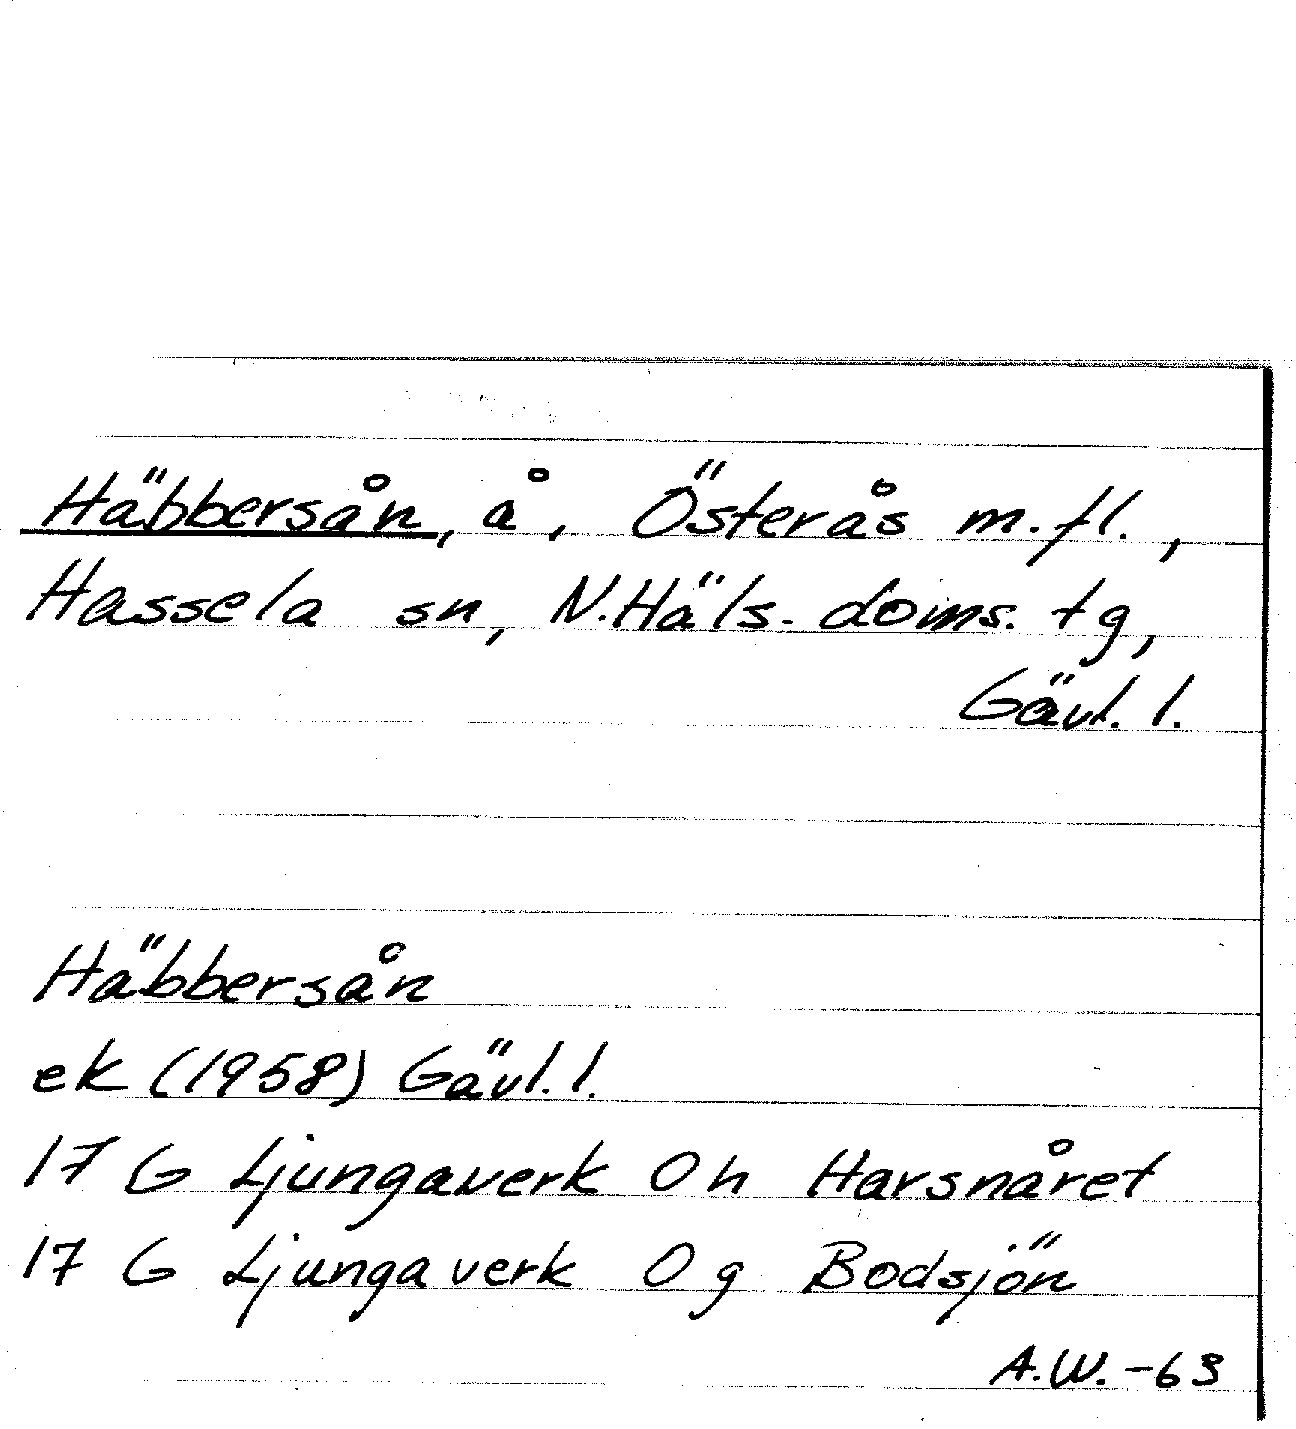 Häbbersån, å, Österås m.fl.,
Hassela sn, N.Häls. doms. tg,
Gävl. l.
Häbbersån
ek (1958) Gävl. l.
17 G Ljungaverk 0 h Harsnåret
17 G Ljungaverk 0 g Bodsjön
A.W. -63